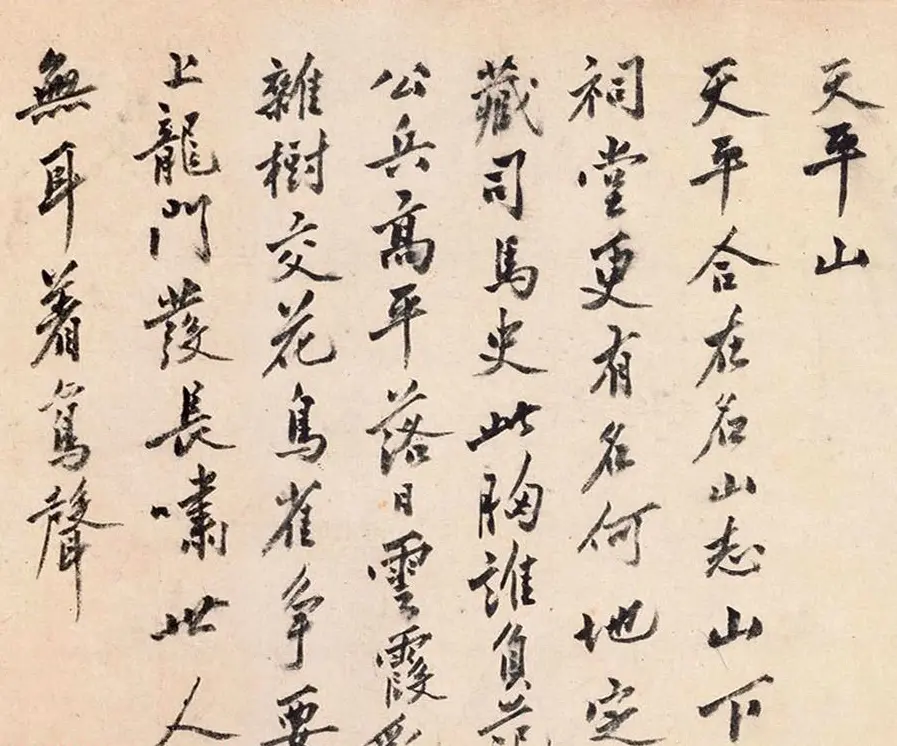 天平山
天平合在名山志山下
祠堂更有名何地定
藏司馬史此胸誰負范
公兵高平落日雲霞
雜樹交花鳥雀爭要
上龍門發長嘯世人
無耳着鸞聲